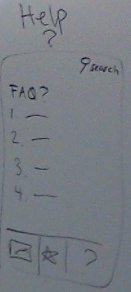 Help
?
search
FAQ?
1.
2.
3.
4.
?